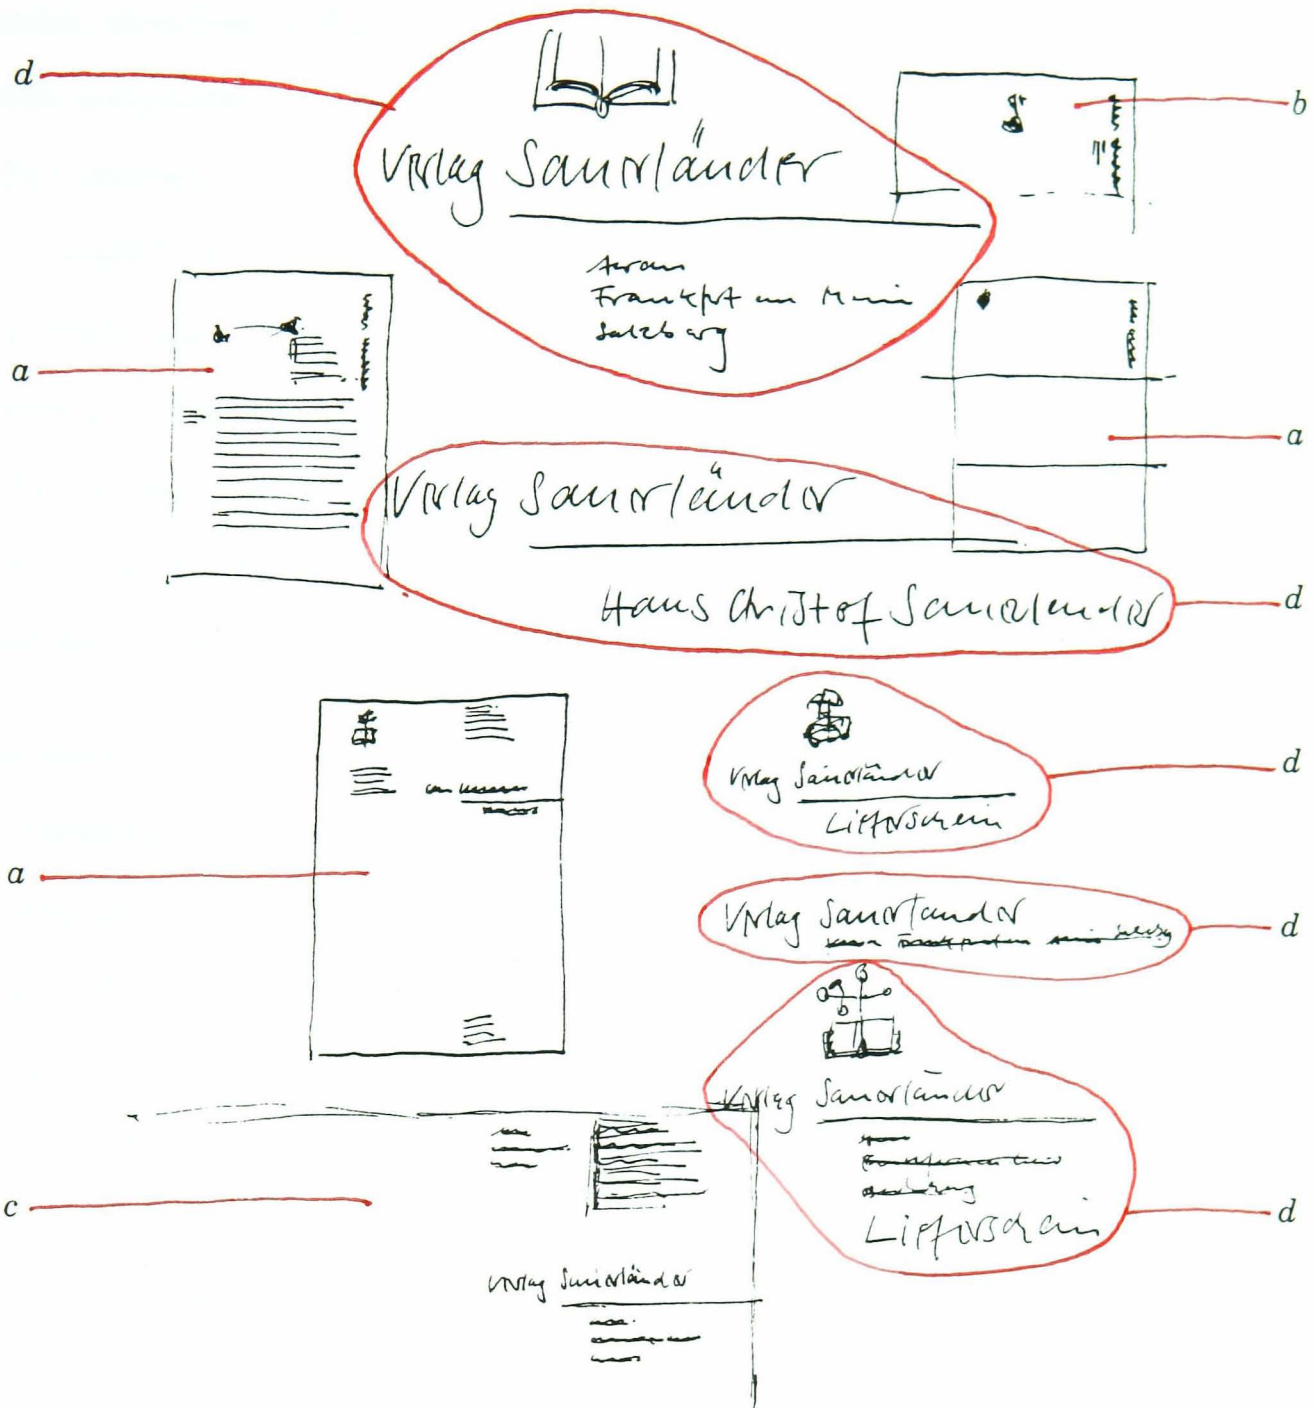 d
b
Verlag Sauerländer
Aarau
Frankfurt am Main
Salzburg
a
a
Verlag Sauerländer
Hans Christof Sauerländer
d
Verlag Sauerländer
Lieferschein
d
a
Verlag Sauerländer
d
Verlag Sauerländer
Lieferschein
c
d
Verlag Sauerländer